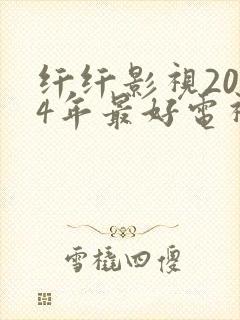 纤纤影视20
4年最好电
雪橇四傻